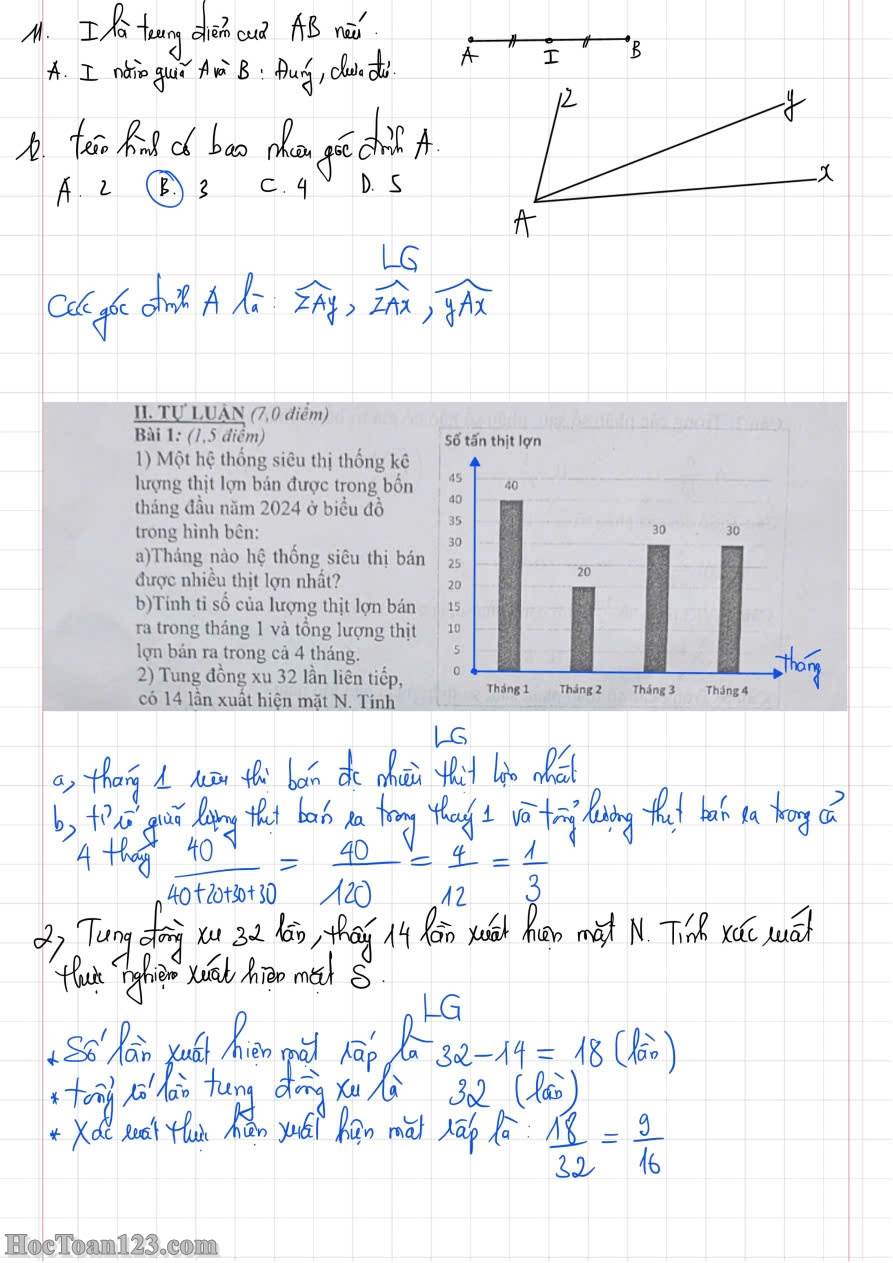 11. I là trung điểm của AB nếu.
A. I nằm giữa A và B : Đúng, chưa đủ.
A I B
12. trên hình có bao nhiêu góc đỉnh A.
A. 2 B. 3 C. 4 D. 5
z y x A
LG
Các góc đỉnh A là: zAy, zAx, yAx
II. TỰ LUẬN (7,0 điểm)
Bài 1: (1,5 điểm)
1) Một hệ thống siêu thị thống kê
lượng thịt lợn bán được trong bốn
tháng đầu năm 2024 ở biểu đồ
trong hình bên:
a)Tháng nào hệ thống siêu thị bán
được nhiều thịt lợn nhất?
b)Tính tỉ số của lượng thịt lợn bán
ra trong tháng 1 và tổng lượng thịt
lợn bán ra trong cả 4 tháng.
2) Tung đồng xu 32 lần liên tiếp,
có 14 lần xuất hiện mặt N. Tính
Số tấn thịt lợn
45
40
35
30
25
20
15
10
5
0
40
20
30
30
Tháng 1 Tháng 2 Tháng 3 Tháng 4
tháng
LG
a, tháng 1 siêu thị bán đc nhiều thịt lợn nhất
b, tỉ số giữa lượng thịt bán ra trong tháng 1 và tổng lượng thịt bán ra trong cả
4 tháng 40/(40+20+30+30) = 40/120 = 4/12 = 1/3
2, Tung đồng xu 32 lần, thấy 14 lần xuất hiện mặt N. Tính xác suất
thực nghiệm xuất hiện mặt S.
LG
* Số lần xuất hiện mặt sấp là 32-14 = 18 (lần)
* tổng số lần tung đồng xu là 32 (lần)
* Xác suất thực hiện xuất hiện mặt sấp là: 18/32 = 9/16
HocToan123.com